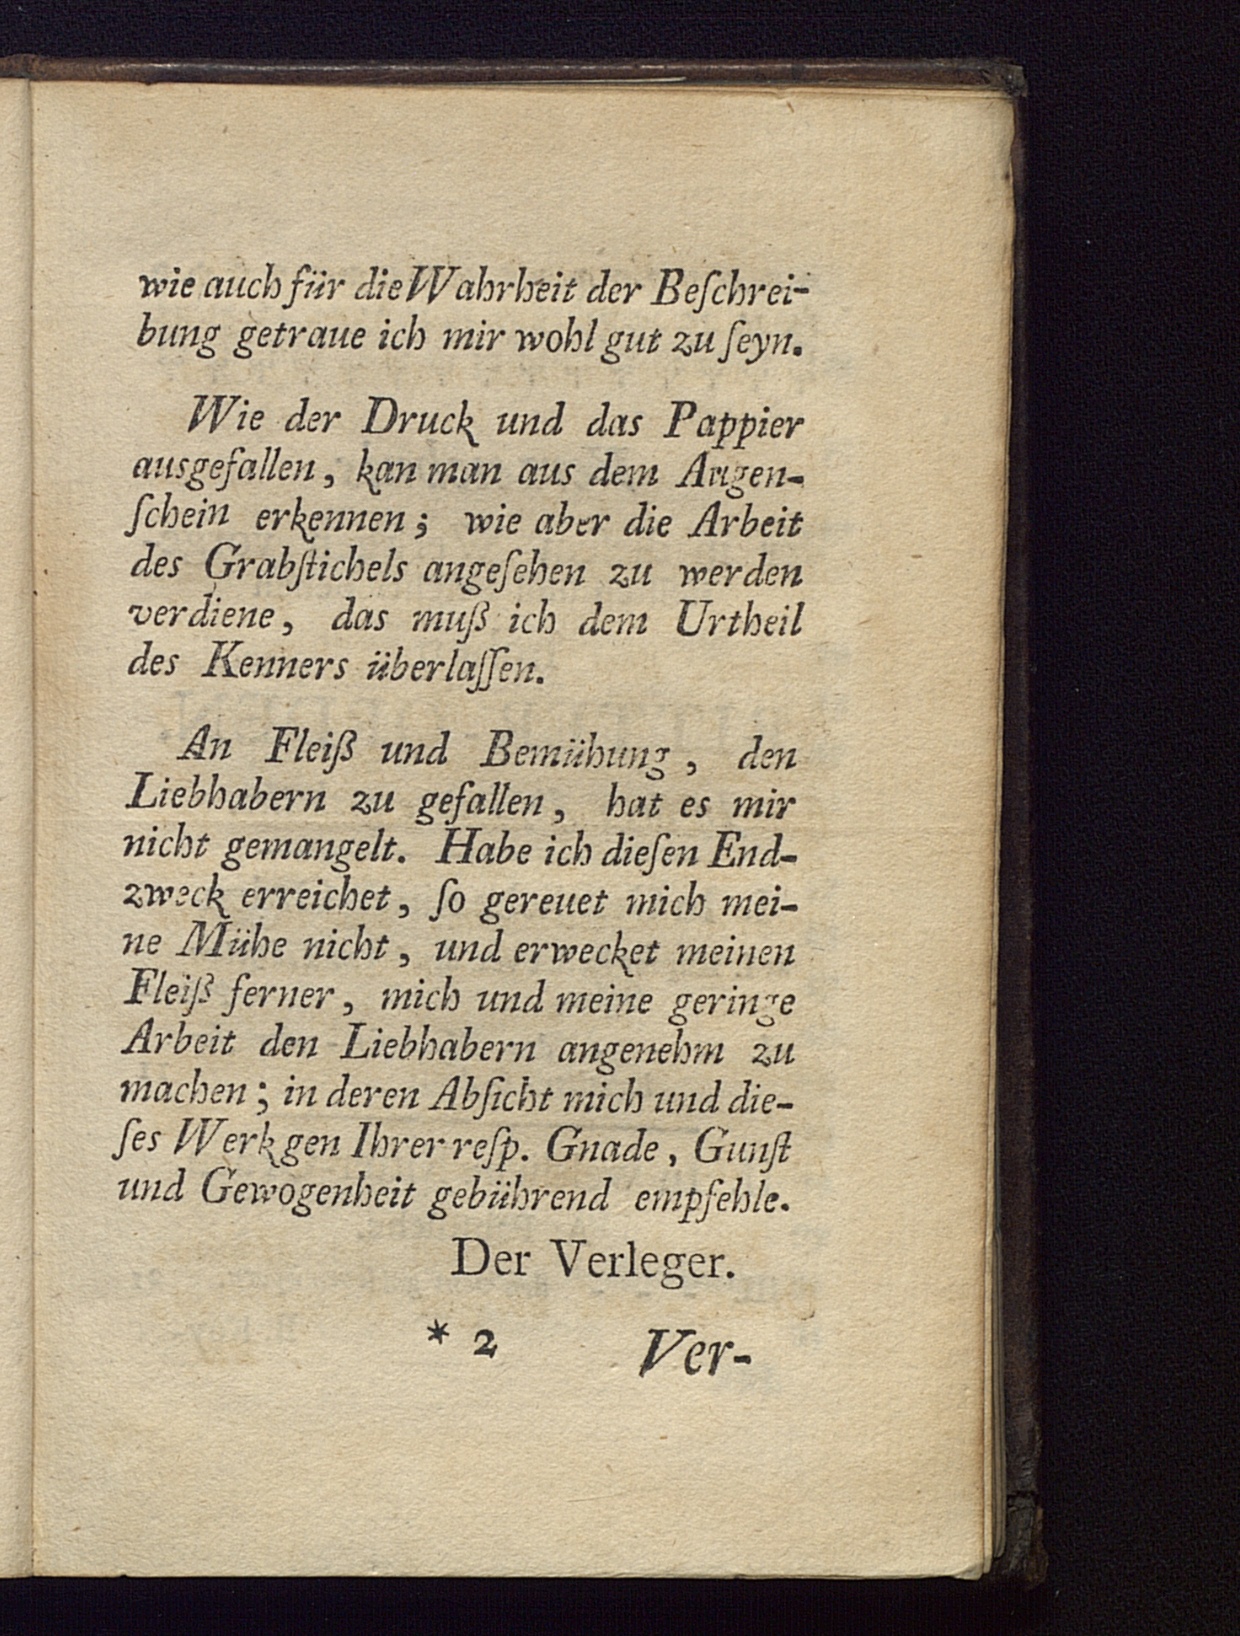 wie auch für die Wahrheit der Beſchrei-
bung getraue ich mir wohl gut zu ſeyn.
Wie der Druck und das Pappier
ausgefallen, kan man aus dem Augen-
ſchein erkennen; wie aber die Arbeit
des Grabſtichels angeſehen zu werden
verdiene, das muß ich dem Urtheil
des Kenners überlaſſen.
An Fleiß und Bemühung, den
Liebhabern zu gefallen, hat es mir
nicht gemangelt. Habe ich dieſen End-
zweck erreichet, ſo gereuet mich mei-
ne Mühe nicht, und erwecket meinen
Fleiß ferner, mich und meine geringe
Arbeit den Liebhabern angenehm zu
machen; in deren Abſicht mich und die-
ſes Werkgen Ihrer reſp. Gnade, Gunſt
und Gewogenheit gebührend empfehle.
Der Verleger.
* 2 Ver-